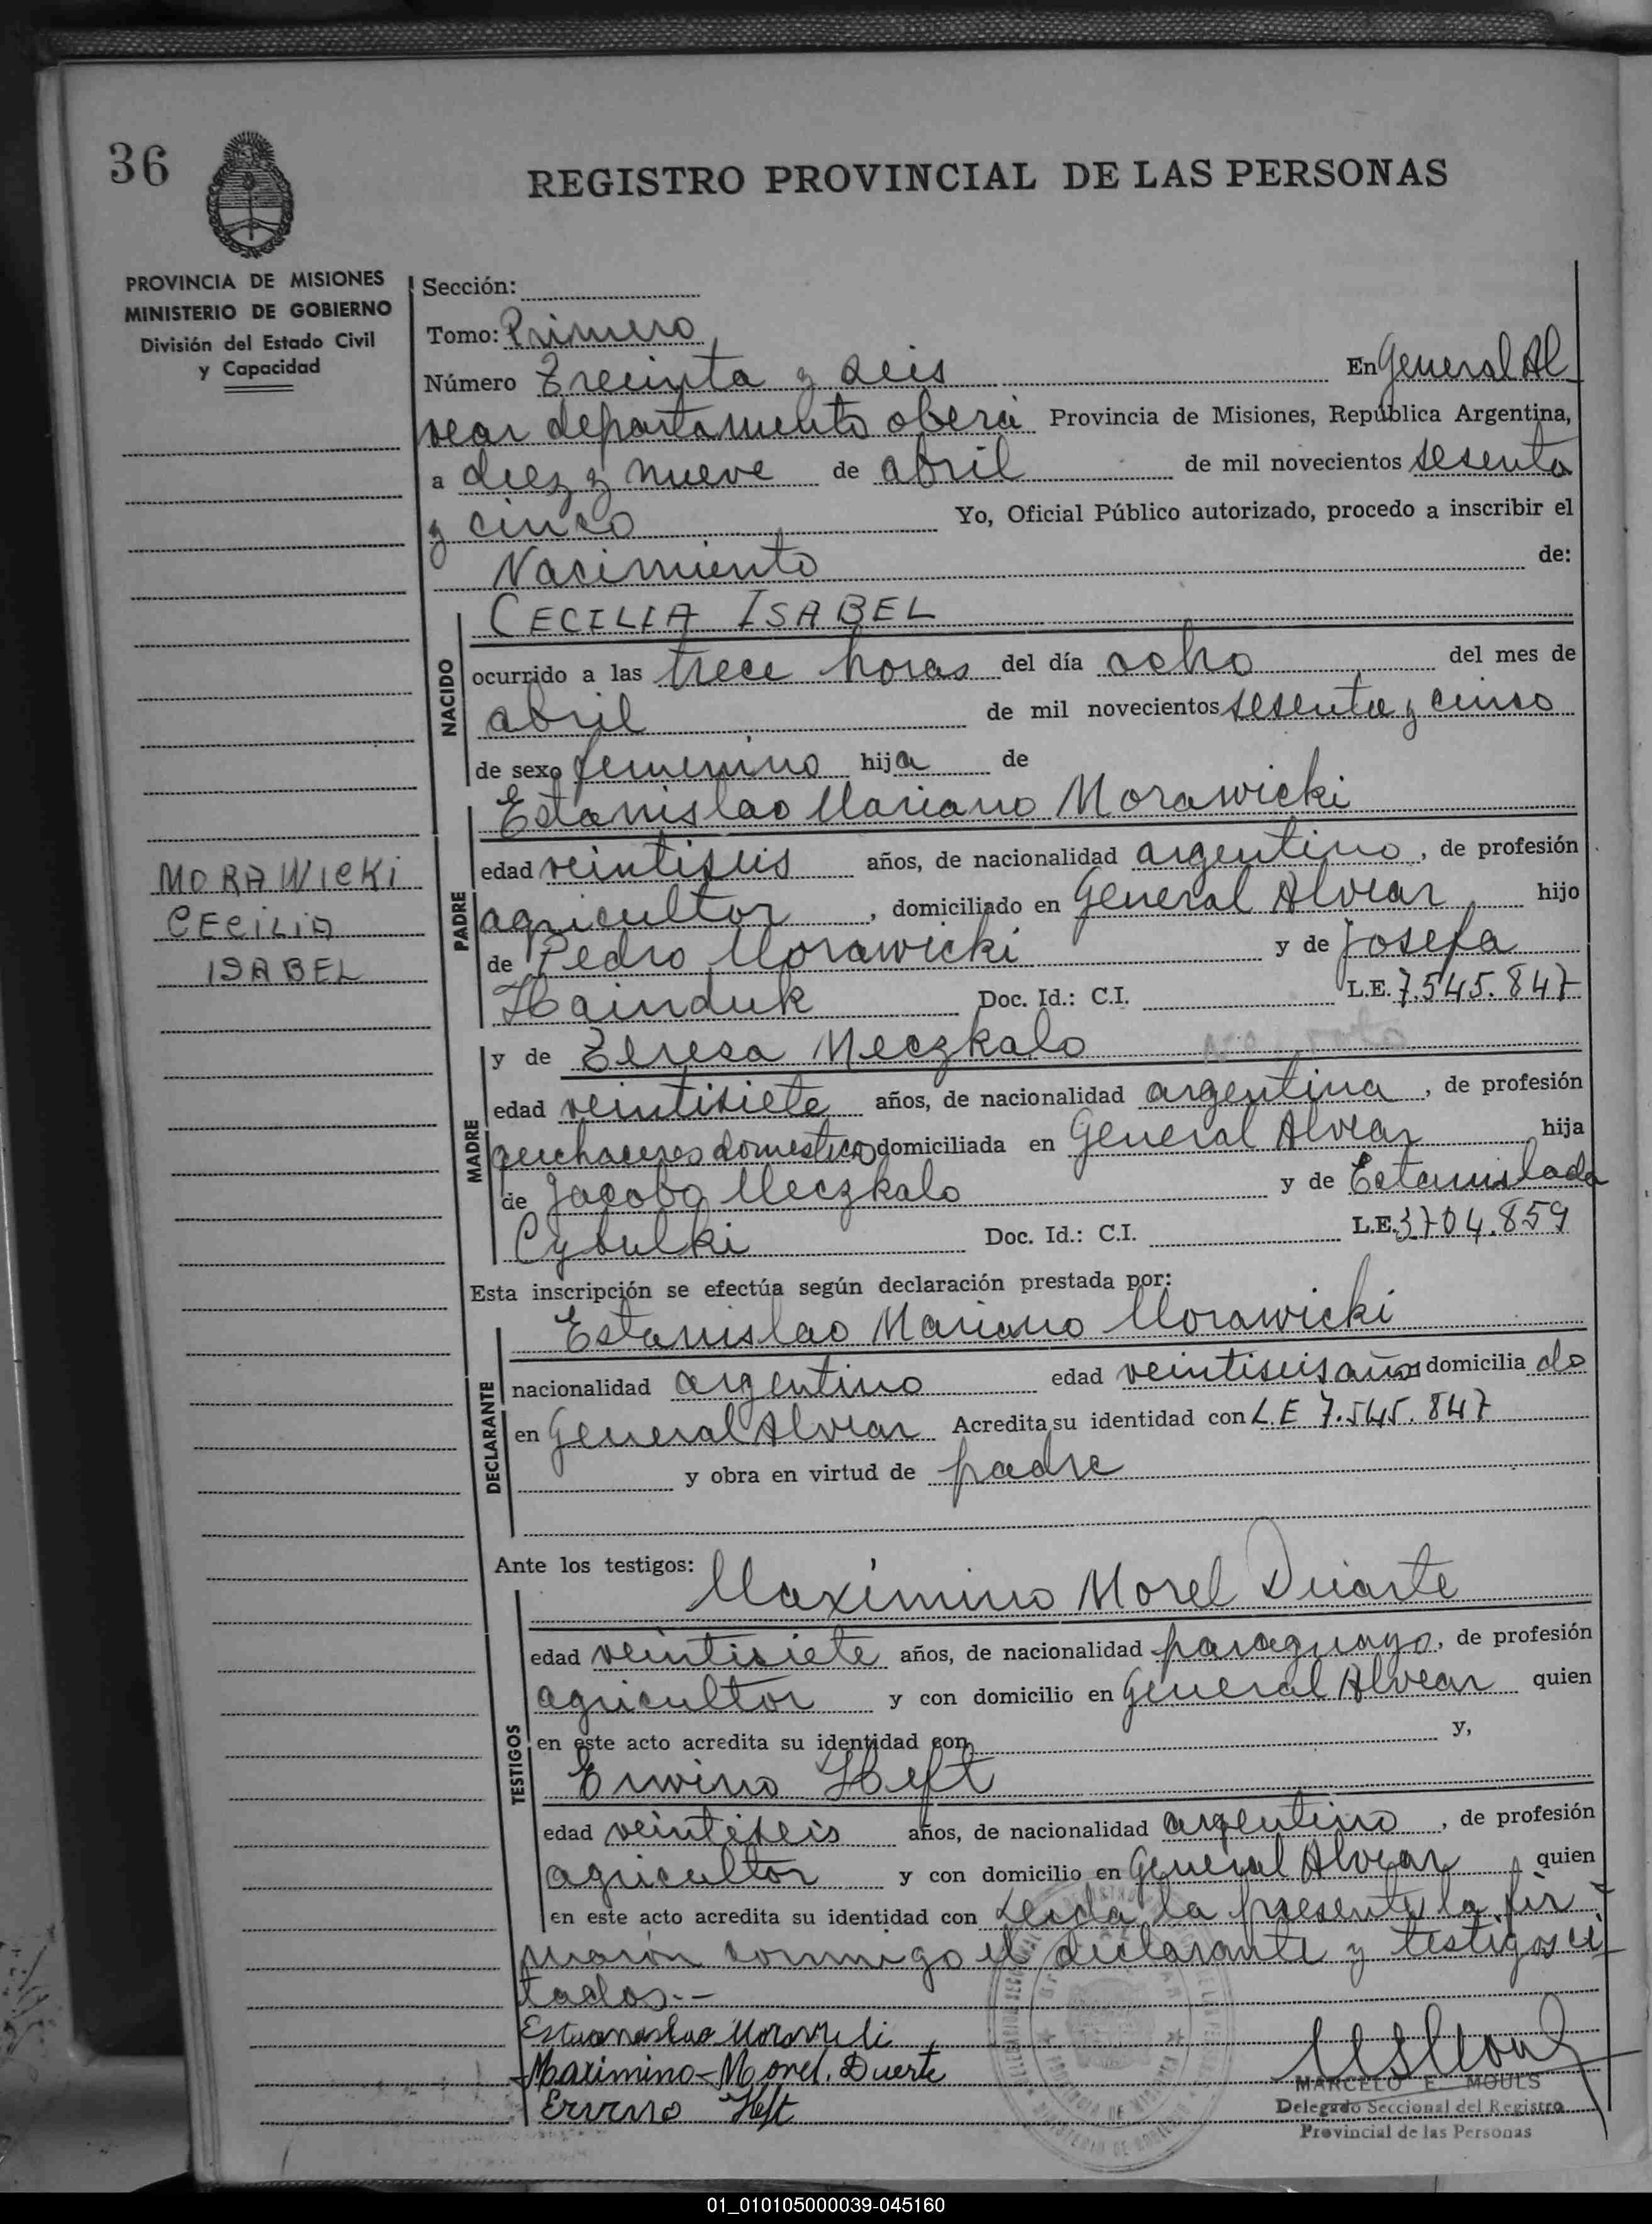 36
REGISTRO PROVINCIAL DE LAS PERSONAS
PROVINCIA DE MISIONES
MINISTERIO DE GOBIERNO
División del Estado Civil
y Capacidad
Sección:
Tomo: Primero
Número Treeinta y seis En General Al
vear departamento oberá Provincia de Misiones, República Argentina,
a diez y nueve de abril de mil novecientos sesenta
y cinco Yo, Oficial Público autorizado, procedo a inscribir el
Nacimiento de:
CECILIA ISABEL
NACIDO
ocurrido a las trece horas del día ocho del mes de
abril de mil novecientos sesenta y cinco
de sexo femenino hija de
Estanislao Mariano Morawicki
PADRE
edad veintiseis años, de nacionalidad argentino, de profesión
agricultor, domiciliado en General Alvear hijo
de Pedro Morawicki y de Josefa
Hainduk Doc. Id.: C.I. L.E. 7.545.847
MORAWICKI
CECILIA
ISABEL
MADRE
y de Teresa Meczkalo
edad veintisiete años, de nacionalidad argentina, de profesión
quehaceres domestico domiciliada en General Alvear hija
de Jacobo Meczkalo y de Estanislada
Cybulki Doc. Id.: C.I. L.E. 3704.859
Esta inscripción se efectúa según declaración prestada por:
Estanislao Mariano Morawicki
DECLARANTE
nacionalidad argentino edad veintiseis años domicilia do
en General Alvear Acredita su identidad con L.E 7.545.847
y obra en virtud de padre
Ante los testigos: Maximino Morel Duarte
TESTIGOS
edad veintisiete años, de nacionalidad paraguayo, de profesión
agricultor y con domicilio en General Alvear quien
en este acto acredita su identidad con y,
Erwino Heft
edad veintiseis años, de nacionalidad argentino, de profesión
agricultor y con domicilio en General Alvear, quien
en este acto acredita su identidad con Leida la presente la fir
maron conmigo el declarante y testigos ci
tados.-
Maximino-Morel. Duerte
Heft
MARCELO E. MOULS
Delegado Seccional del Registro
Provincial de las Personas
01_010105000039-045160